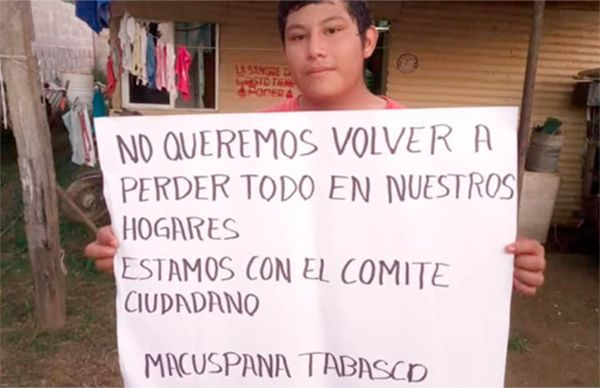 LA SANGRE DE
CRISTO TIENE
PODER
NO QUEREMOS VOLVER A
PERDER TODO EN NUESTROS
HOGARES
ESTAMOS CON EL COMITE
CIUDADANO
MACUSPANA TABASCO